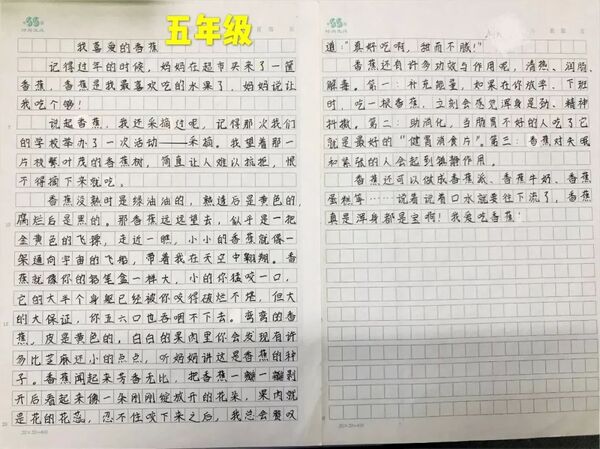 五年级
我喜爱的香蕉
记得过年的时候，妈妈在超市买来了一筐
香蕉，香蕉是我最喜欢吃的水果了，妈妈说让
我吃个够！
说起香蕉，我还采摘过呢，记得那次我们
的学校举办了一次活动——采摘。我望着那一
片枝繁叶茂的香蕉树，简直让人难以抗拒，恨
不得摘下来就吃。
香蕉没熟时是绿油油的，熟透后是黄色的，
腐烂后是黑的。那香蕉远远望去，似乎是一把
金黄色的飞镖，走近一瞧，小小的香蕉就像一
架通向宇宙的飞船，带着我在天空中翱翔。香
蕉就像你的铅笔盒一样大，小的你猛咬一口，
它的大半个身躯已经被你咬得破烂不堪，但大
的大保证，你五六口也吞咽不下去。弯弯的香
蕉，皮是黄色的，白白的果肉里你会发现有许
多比芝麻还小的点点，听妈妈讲这是香蕉的种
子。香蕉闻起来芳香无比，把香蕉一瓣一瓣剥
开后看起来像一朵刚刚绽放开的花朵，果肉就
是花的花蕊，忍不住咬下来之后，我总会赞叹
20×20=400
道："真好吃啊，甜而不腻！"
香蕉还有许多功效与作用呢，清热、润肠、
解毒。第一：补充能量，如果在你放学、下班
时，吃一根香蕉，立刻会感觉浑身是劲、精神
抖擞。第二：助消化，当肠胃不好的人吃了它
就是最好的"健胃消食片"。第三：香蕉对失眠
和紧张的人会起到镇静作用。
香蕉还可以做成香蕉派、香蕉牛奶、香蕉
蛋糕等……说着说着口水就要往下流了，香蕉
真是浑身都是宝啊！我爱吃香蕉！
20×20=400